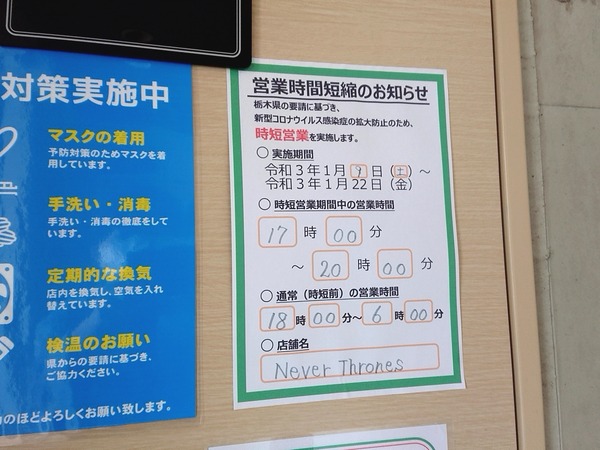 対策実施中
マスクの着用
予防対策のためマスクを着
用しています。
手洗い・消毒
手洗い・消毒の徹底をして
います。
定期的な換気
店内を換気し、空気を入れ
替えています。
検温のお願い
県からの要請に基づき、
ご協力ください。
のほどよろしくお願い致します。
営業時間短縮のお知らせ
栃木県の要請に基づき、
新型コロナウイルス感染症の拡大防止のため、
時短営業を実施します。
○ 実施期間
令和3年1月9日(土)～
令和3年1月22日(金)
○ 時短営業期間中の営業時間
17時00分
～20時00分
○ 通常（時短前）の営業時間
18時00分～6時00分
○ 店舗名
Never Thrones